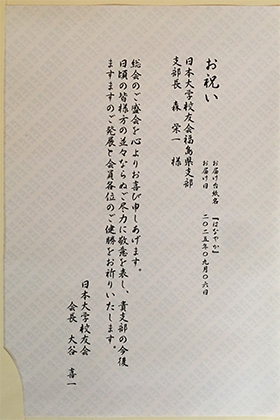 お祝い
お届け台紙名 『はなやか』
お届け日 二〇二五年〇九月〇六日
日本大学校友会福島県支部
支部長 森 栄一 様
総会のご盛会を心よりお喜び申しあげます。
日頃の皆様方の並々ならぬご尽力に敬意を表し、貴支部の今後
ますますのご発展と会員各位のご健勝をお祈りいたします。
日本大学校友会
会長 大谷 喜一